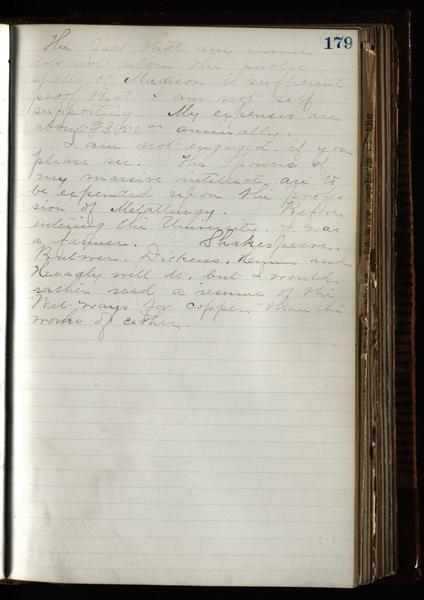 179
The fact that my name
does not adorn the public
slates of Madison is sufficient
proof that I am not self
supporting. My expenses are
about $350 00 annually.
I am not engaged, if you
please sir. The powers of
my massive intellect are to
be expended upon the profes-
sion of Metallurgy. Before
entering the University I was
a farmer. Shakespeare,
Bulwer, Dickens, and
Headly will do, but I would
rather read a resume of the
"Wet-ways for copper" than the
works of either.